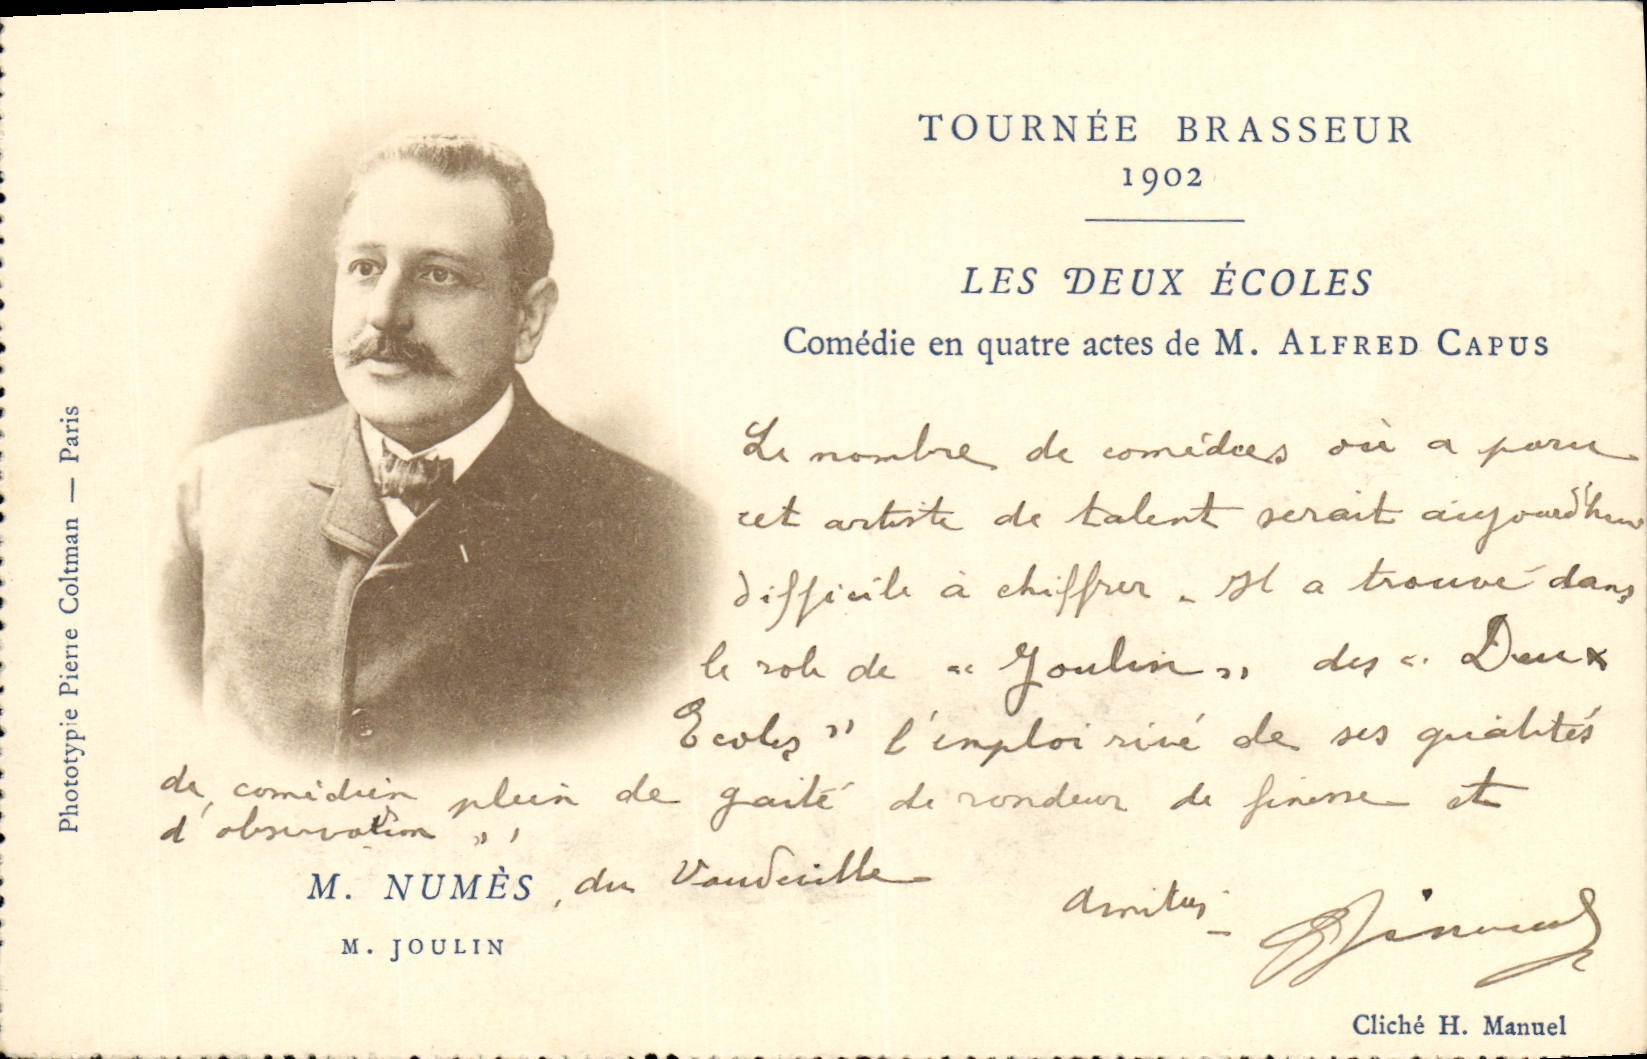 TOURNÉE BRASSEUR
1902
LES DEUX ÉCOLES
Comédie en quatre actes de M. ALFRED CAPUS
Le nombre de comédies où a paru
cet artiste de talent serait aujourd'hui
difficile à chiffrer - Il a trouvé dans
le role de " Joulin " des " Deux
Ecoles " l'emploi rivé de ses qualités
de comédien plein de gaité de rondeur de finesse et
d'observation "
M. NUMÈS, du Vaudeville
M. JOULIN
Amitiés -
Cliché H. Manuel
Phototypie Pierre Coltman — Paris